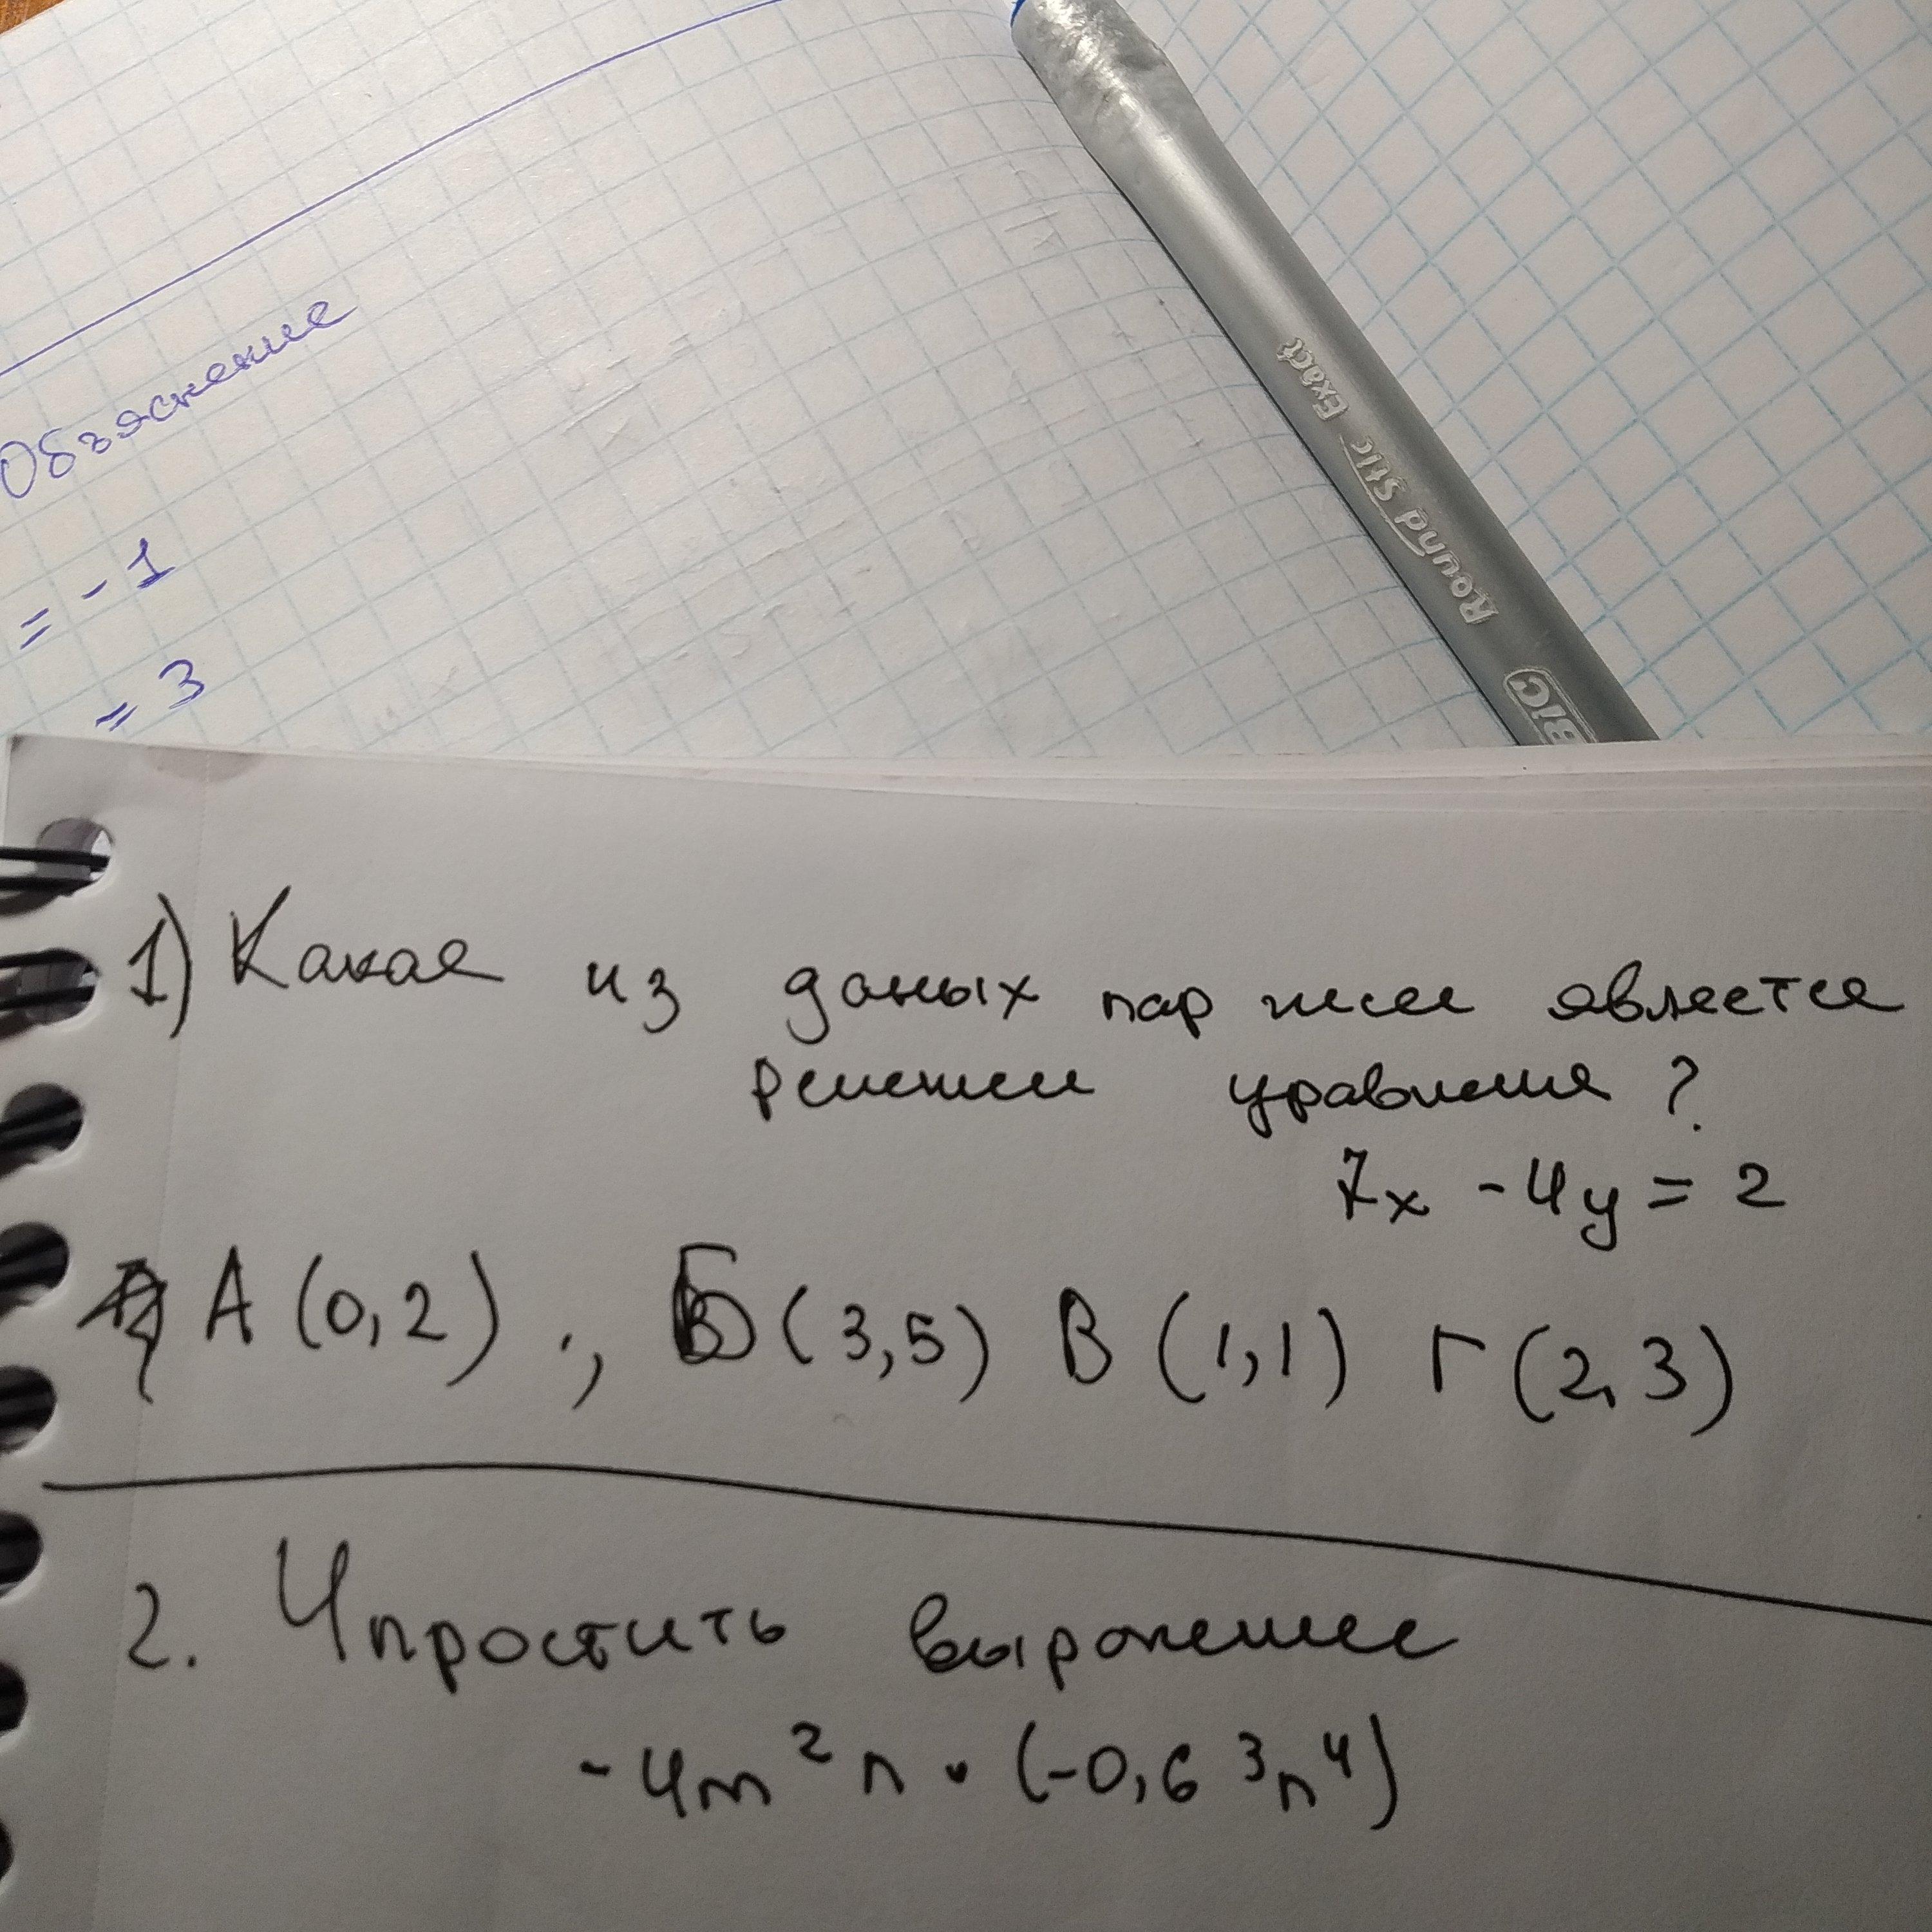 Объяснение
= -1
= 3
BIC Round Stic Exact
1) Какая из даных пар чисел является
решением уравнения?
7x - 4y = 2
А (0,2) ., Б (3,5) В (1,1) Г (2,3)
2. Упростить выражение
- 4m²n · (-0,6 ³n⁴)